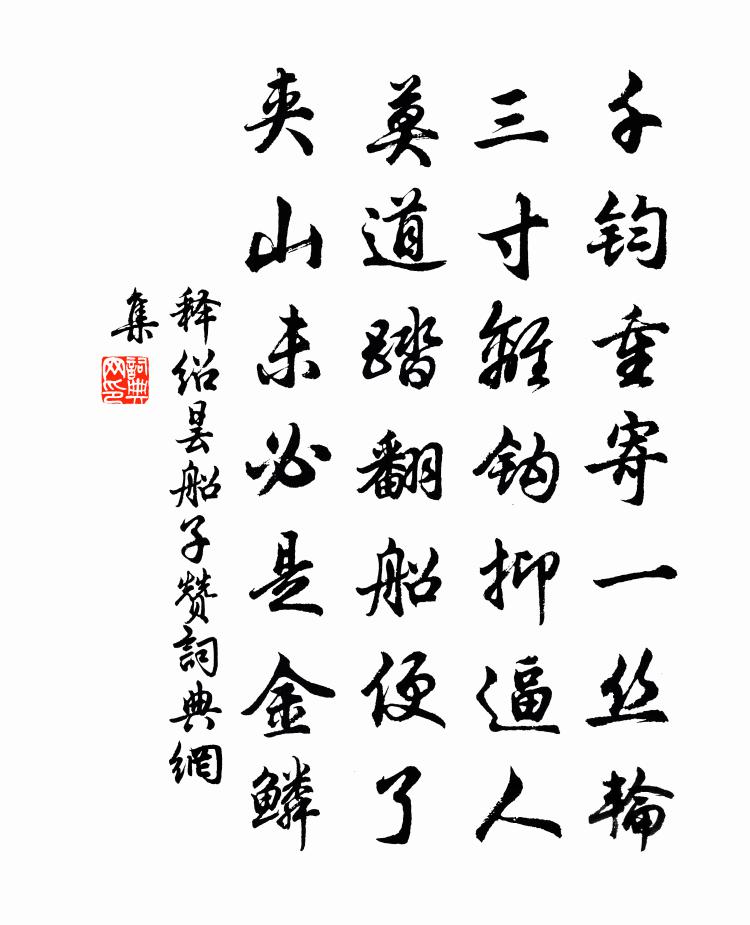 千鈞重寄一丝輪
三寸離鈎抑逼人
莫道踏翻船便了
夹山未必是金鱗
释绍昙船子赞詞典網
集
詞典网印